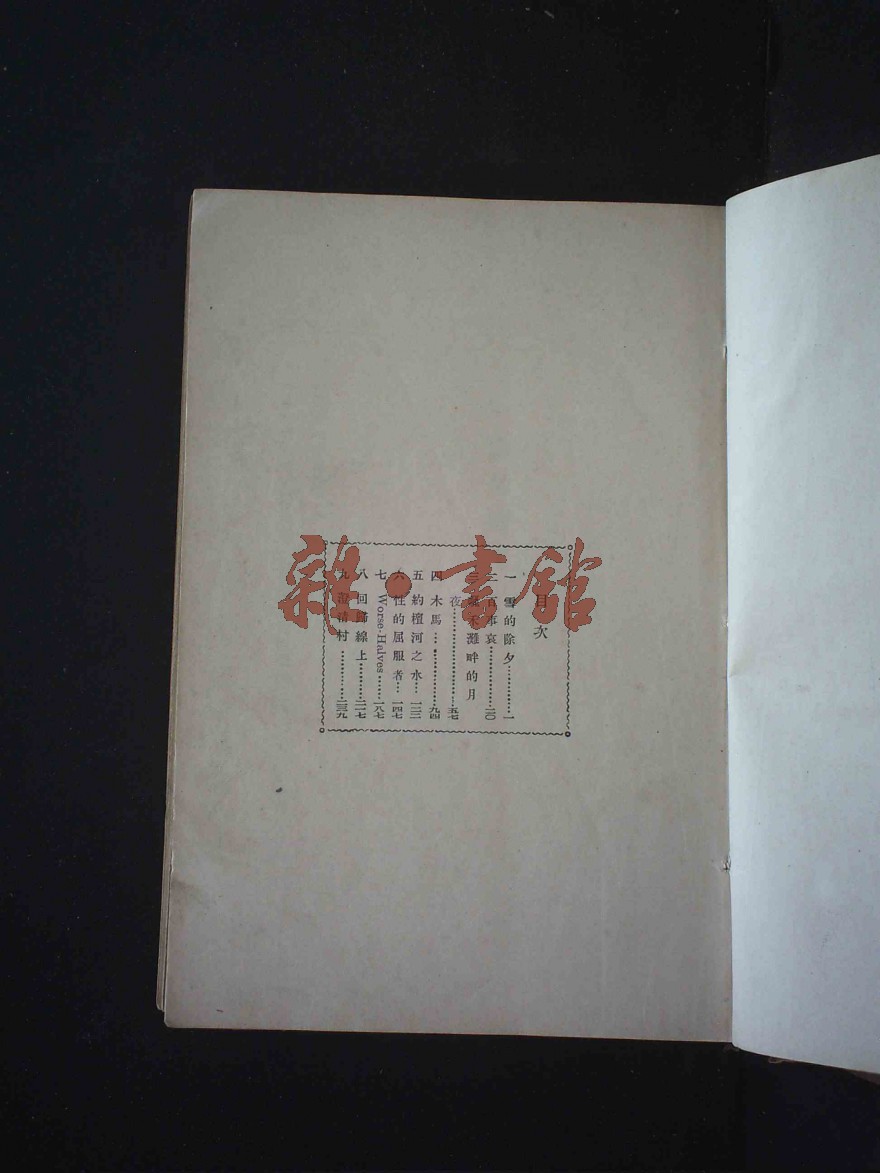 目次
一 雪的除夕…………一
二 百事哀…………二〇
三 禾灘畔的月
夜…………五七
四 木馬…………九四
五 約檀河之水…
六 性的屈服者…一四七
七 Worse-Halves……一八七
八 回歸線上……二一七
九 村………二三九
雜·書館